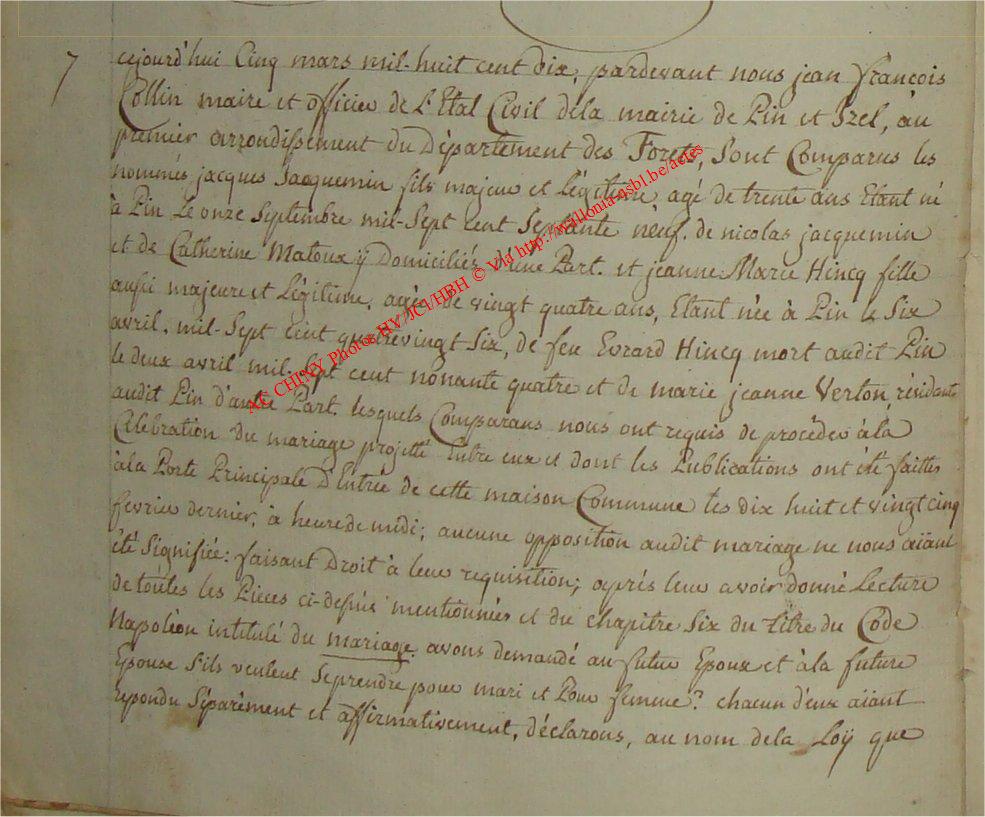 7 cejourd'hui Cinq mars mil-huit cent dix, pardevant nous jean françois
Collin maire et officier de L'Etat Civil dela mairie de Pin et Izel, au
premier arrondissement du Département des Forets, Sont Comparus les
nommés jacques Jacquemin fils majeur et Légitime, agé de trente ans Etant né
à Pin Le onze Septembre mil-Sept cent Septante neuf. de nicolas jacquemin
et de Catherine Matoux ÿ Domiciliés d'une Part. et jeanne Marie Hincq fille
aussi majeure et Légitime, agée de vingt quatre ans, Etant née à Pin le Six
avril, mil-Sept cent quatrevingt Six, de feu Evrard Hincq mort audit Pin
le deux avril mil-Sept cent nonante quatre et de marie jeanne Verton résidante
audit Pin d'autre Part. lesquels Comparans nous ont requis de procéder àlà
Célébration du mariage projetté Entre eux et dont les Publications ont été faittes
àla Porte Principale d'Entrée de cette maison Commune les dix huit et vingt cinq
fevrier dernier, à heure de midi; aucune opposition audit mariage ne nous aïant
été Signifiée: faisant Droit à leur requisition; après leur avoir donné Lecture
de toutes les Pieces ci-dessus mentionnées et du chapitre Six du titre du Code
Napoléon intitulé du mariage. avons demandé au futur Epoux et àla future
Epouse s'ils veulent Seprendre pour mari et Pour femme? chacun d'eux aïant
repondu Séparément et affirmativement, déclarons, au nom dela Loÿ que
AC CHINY Photos HV/JCI/HBH © Via http://wallonia-asbl.be/actes